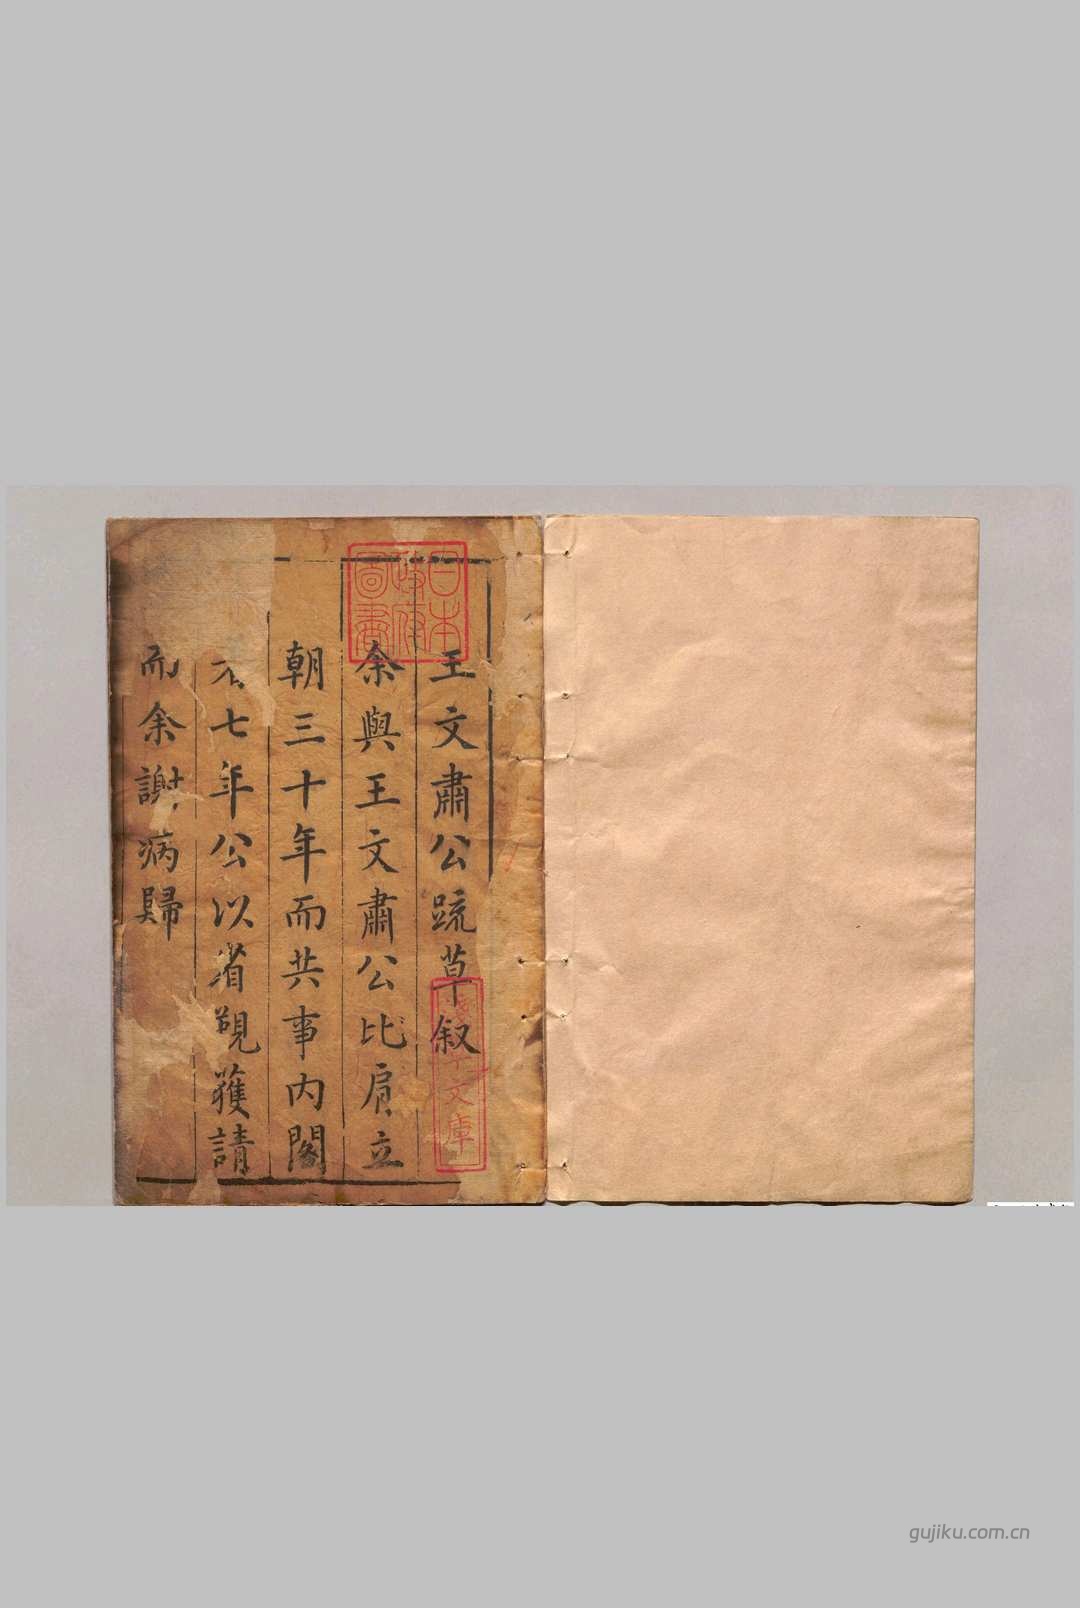 王文肅公疏草叙
余與王文肅公比肩立
朝三十年而共事內閣
七年公以省覲獲請
而余謝病歸
日本
政府
圖書
文庫
gujiku.com.cn